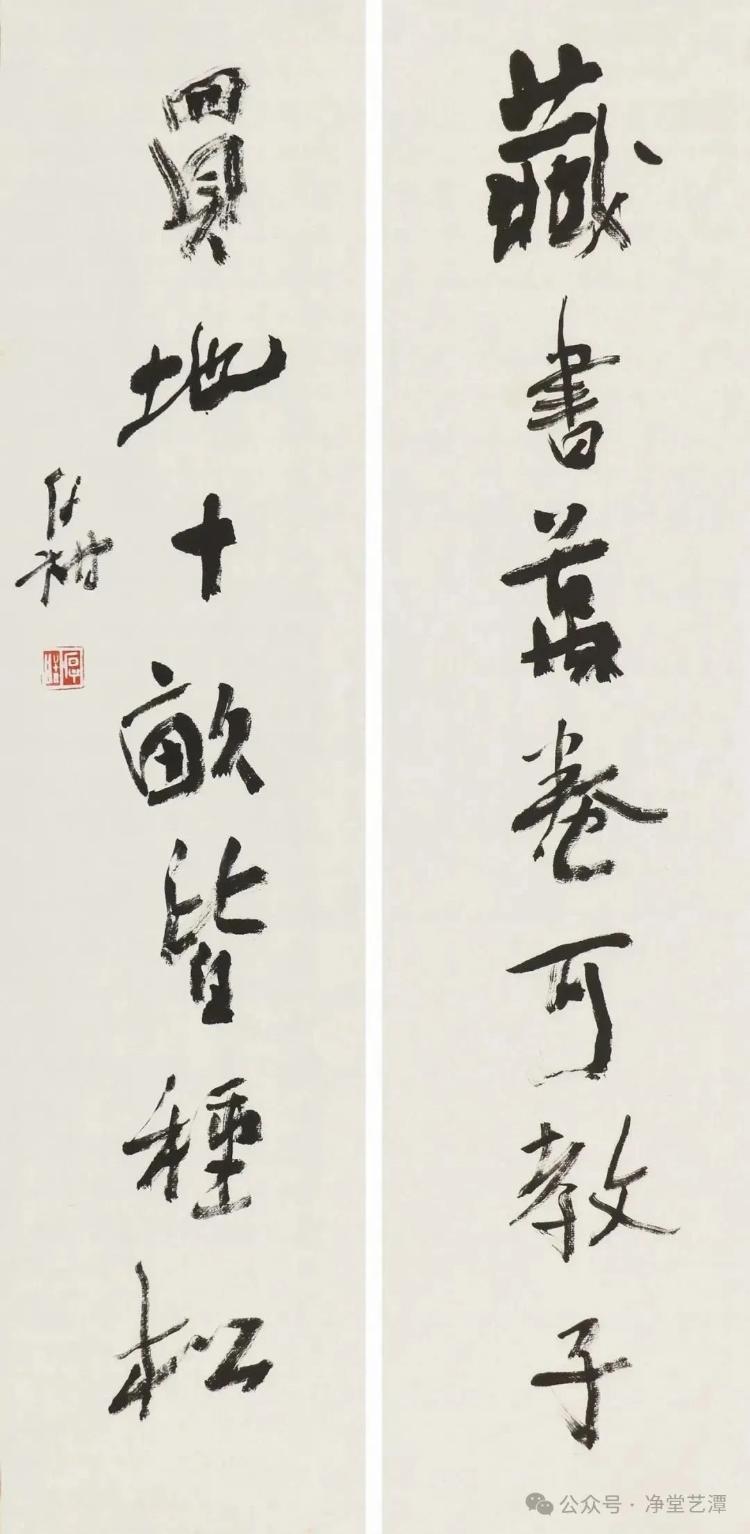 藏書萬卷可教子
買地十畝皆種松
公众号 · 净堂艺潭